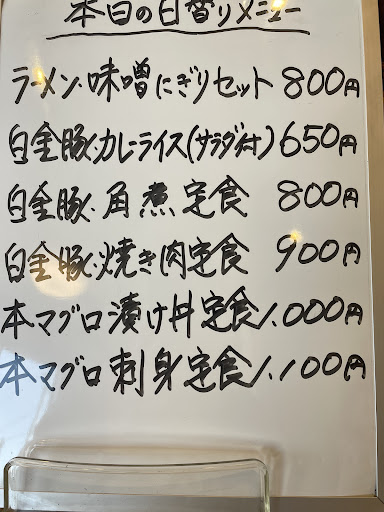 本日の日替りメニュー
ラーメン・味噌にぎりセット 800円
白金豚・カレーライス(サラダ付) 650円
白金豚・角煮定食 800円
白金豚・焼き肉定食 900円
本マグロ漬け丼定食 1.000円
本マグロ刺身定食 1.100円